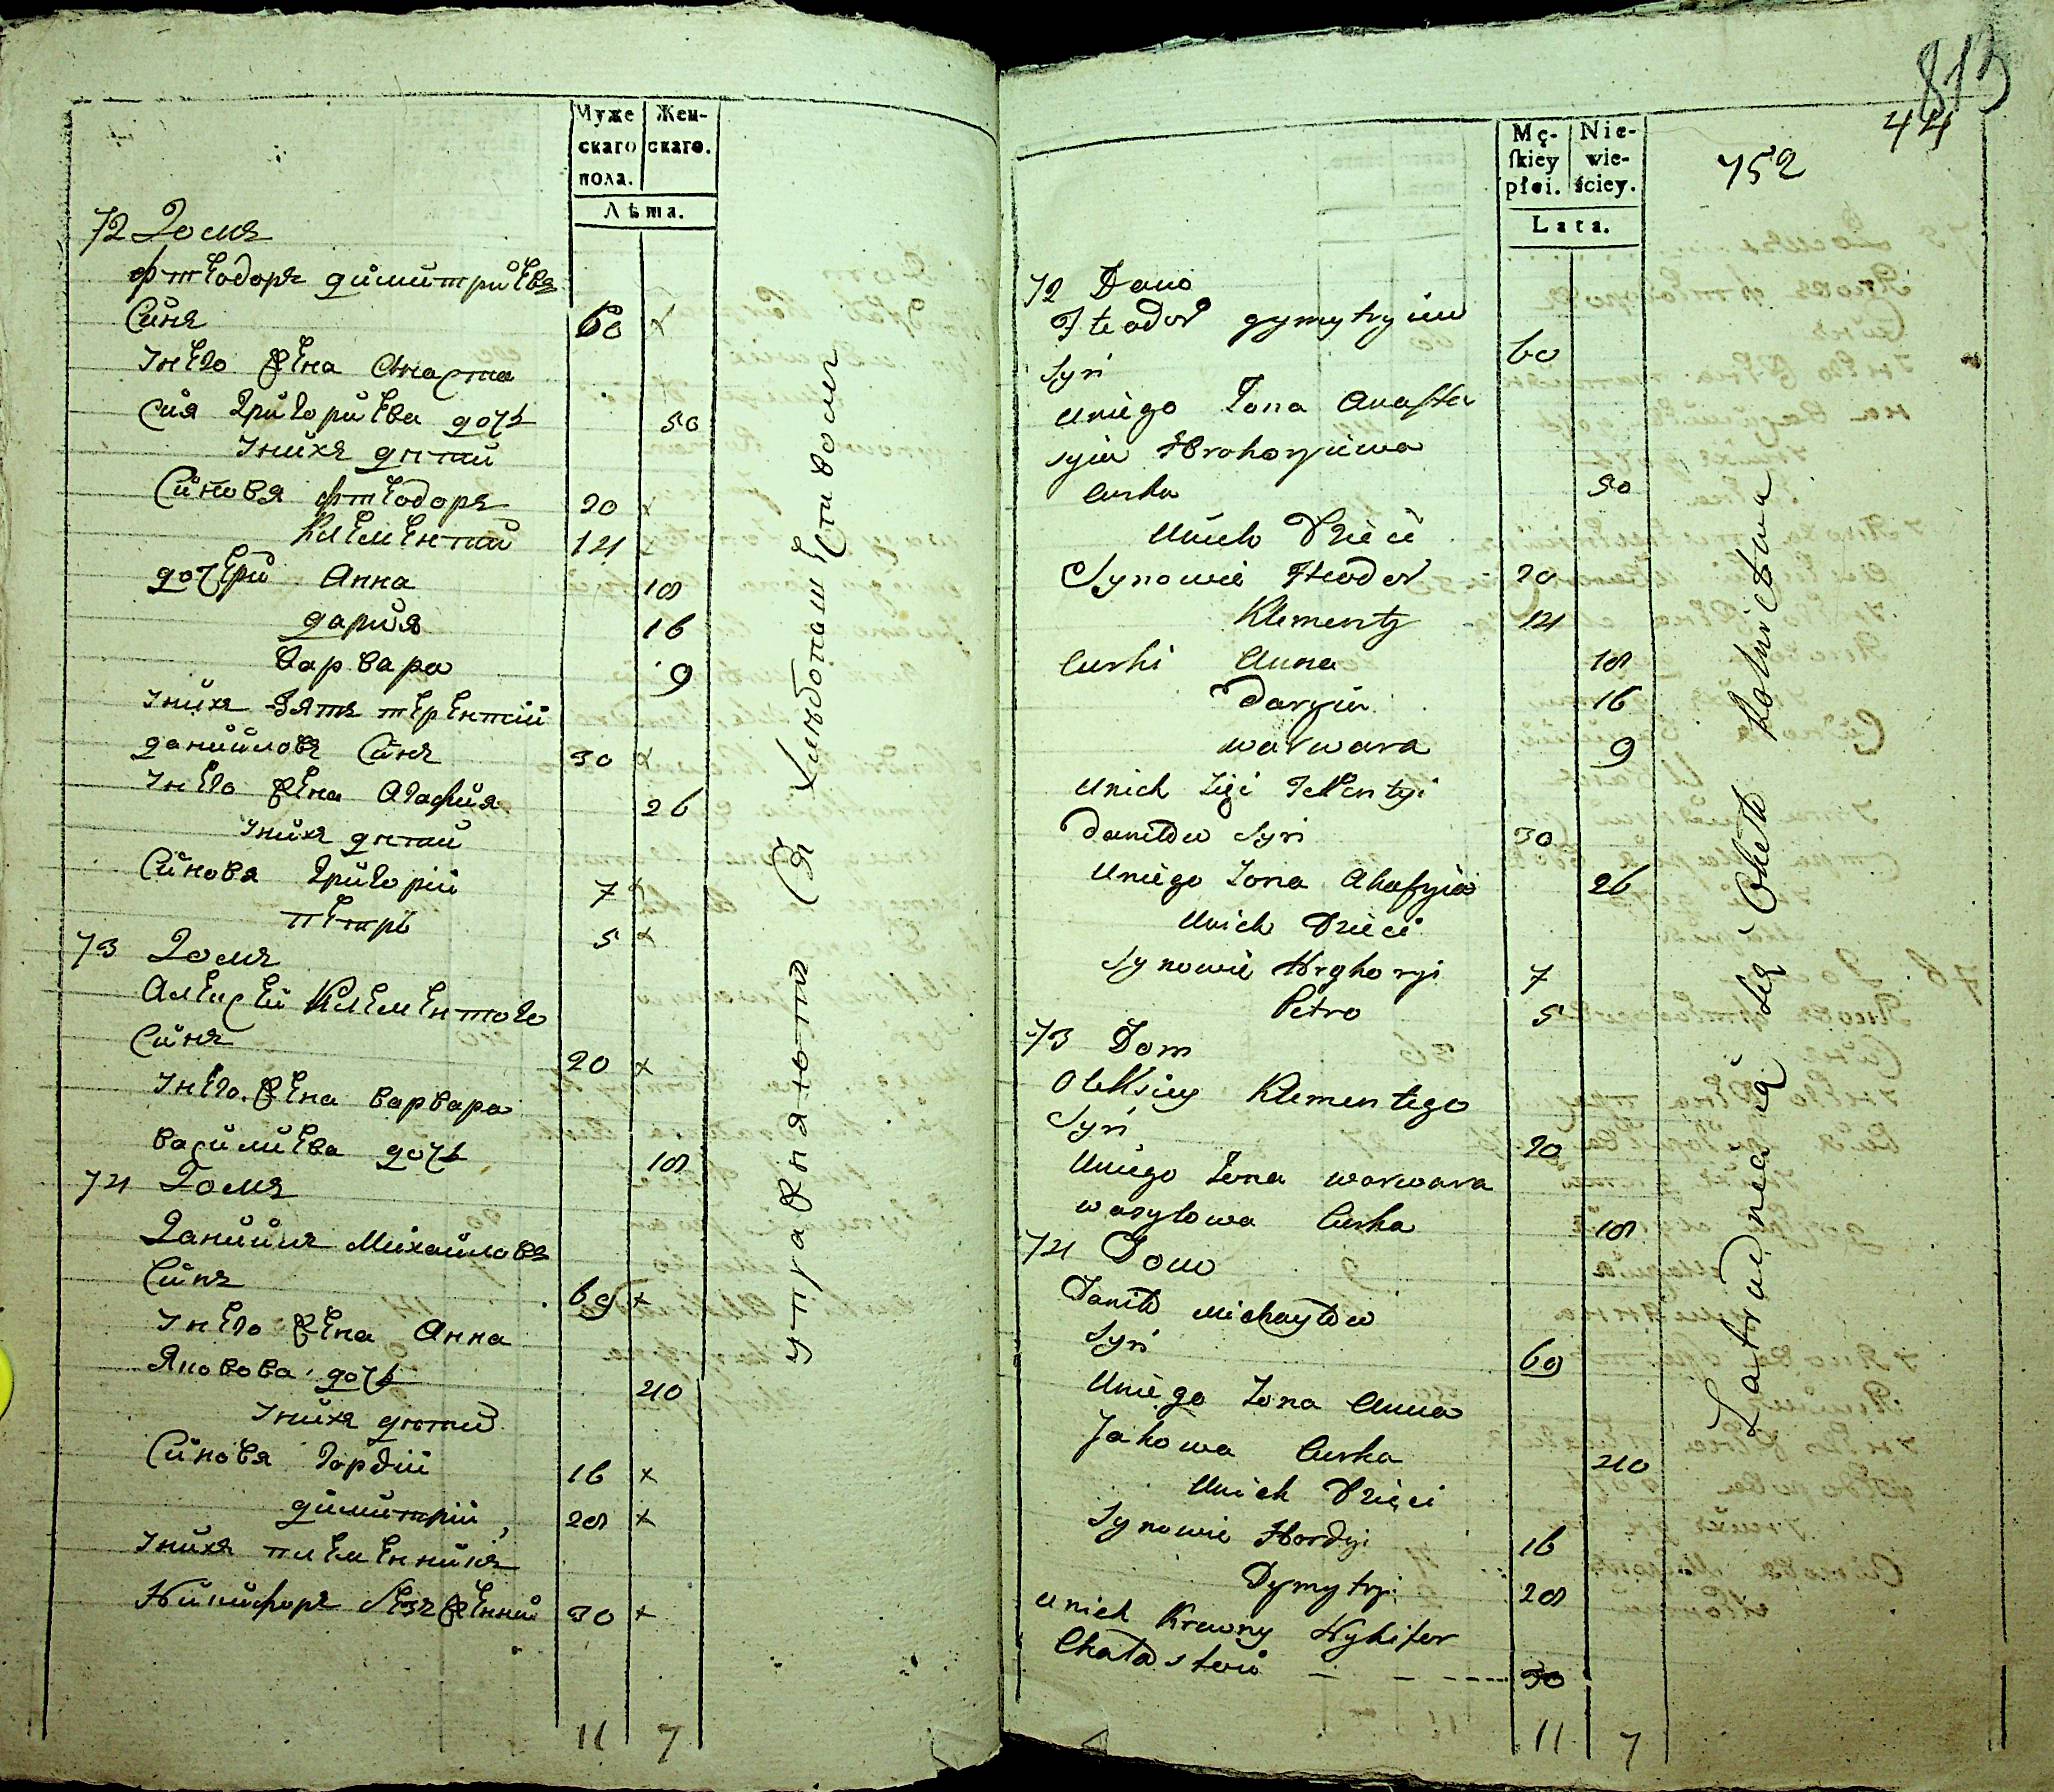 Муже
скаго
пола.
Жен-
скаго.
Лѣта.
72 Домъ
Фтеодоръ димитриевъ
Синъ 60 x
У него жена Анаста
сия григориева дочь 50
У нихъ дѣти
Синовя фтеодоръ 20 x
Климентий 14 x
дочери Анна 18
дария 16
варвара 9
У нихъ зять терентий
данииловъ Синъ 30 x
У него жена Агафия 26
У нихъ дѣти
Синовя григорий 7 x
петръ 5 x
73 Домъ
Алексей Климентого
Синъ 20 x
У него жена варвара
василиева дочь 18
74 Домъ
Даниилъ Михаиловъ
Синъ 69 x
У него жена Анна
Яковова дочь 40
У нихъ дѣти
Синовя гордий 16 x
димитрий 28 x
У нихъ племенникъ
Никифоръ 30 x
11 7
упражняются Хлебопашеством
813
44
752
Mę-
skiey
płci.
Nie-
wie-
ściey.
Lata.
72 Dom
Fteodor Dymytryiew
Syn 60
U niego Zona Anasta
syia Hryhoryiewa
Curka 50
U nich Dzieci
Synowie Fteodor 20
Klementy 14
Curki Anna 18
Daryia 16
warwara 9
U nich Zięć Terentyi
Daniłow Syn 30
U niego Zona Ahafyia 26
U nich Dzieci
Synowie Hryhoryi 7
Petro 5
73 Dom
Oleksiey Klementego
Syn 20
U niego Zona warwara
wasylowa Curka 18
74 Dom
Daniło Michayłow
Syn 69
U niego Zona Anna
Jakowa Curka 40
U nich Dzieci
Synowie Hordyi 16
Dymytryi 28
U nich Krewny Nykifor
30
11 7
Zatrudniaią się Rolnictwa